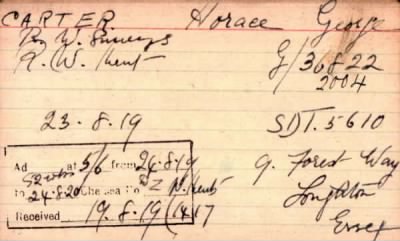 CARTER Horace George
R. W. Surreys G/36822
R. W. Kent 2004
23.8.19 SDT. 5610
Ad at 5/6 from 24.8.19 9. Forest Way
52 wks
to 24.8.20 Chelsea No W. Kent Loughton
Received 19.8.19 (1417 Essex